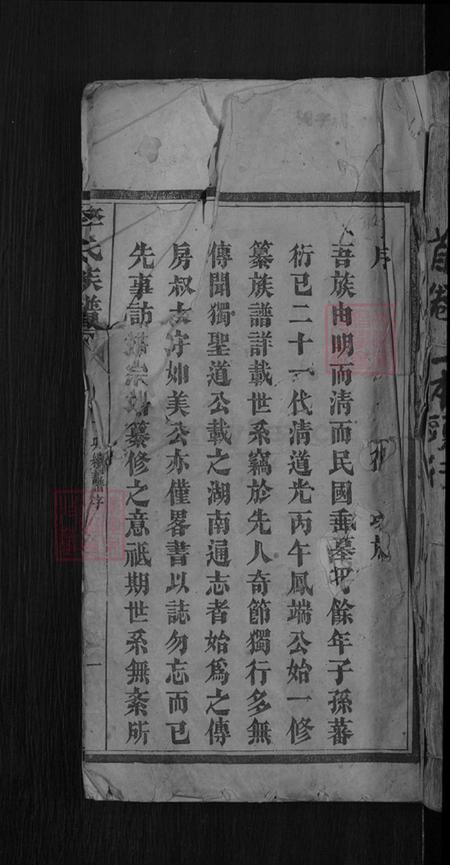 序
吾族由明而清而民國垂墓㧞餘年子孫蕃
衍已二十一代清道光丙午鳳端公始一修
纂族譜詳載世系竊於先人奇節獨行多無
傳聞獨聖道公載之湖南通志者始爲之傳
房叔太守如美公亦僅畧書以誌勿忘而已
先事訪纂修之意祗期世系無紊所
氏族譜
一
首卷一